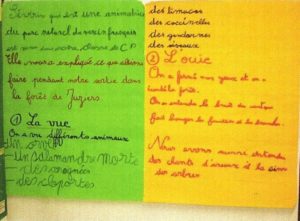 qui est une animatrice
du parc naturel du vexin français
est venue dans notre classe de CP
Elle nous a expliqué ce que allions
faire pendant notre sortie dans
la forêt de Juziers
① La vue
On a vu différents animaux
Un
- Un salamandre morte
- des araignées
- des cloportes
des limaces
des coccinelles
des gendarmes
des oiseaux
② L'ouïe
On a fermé nos yeux et on a
la forêt.
On a entendu le bruit du
fait bouger les et les branches.
Nous avons entendu
des chants d'oiseaux à la cime
des arbres